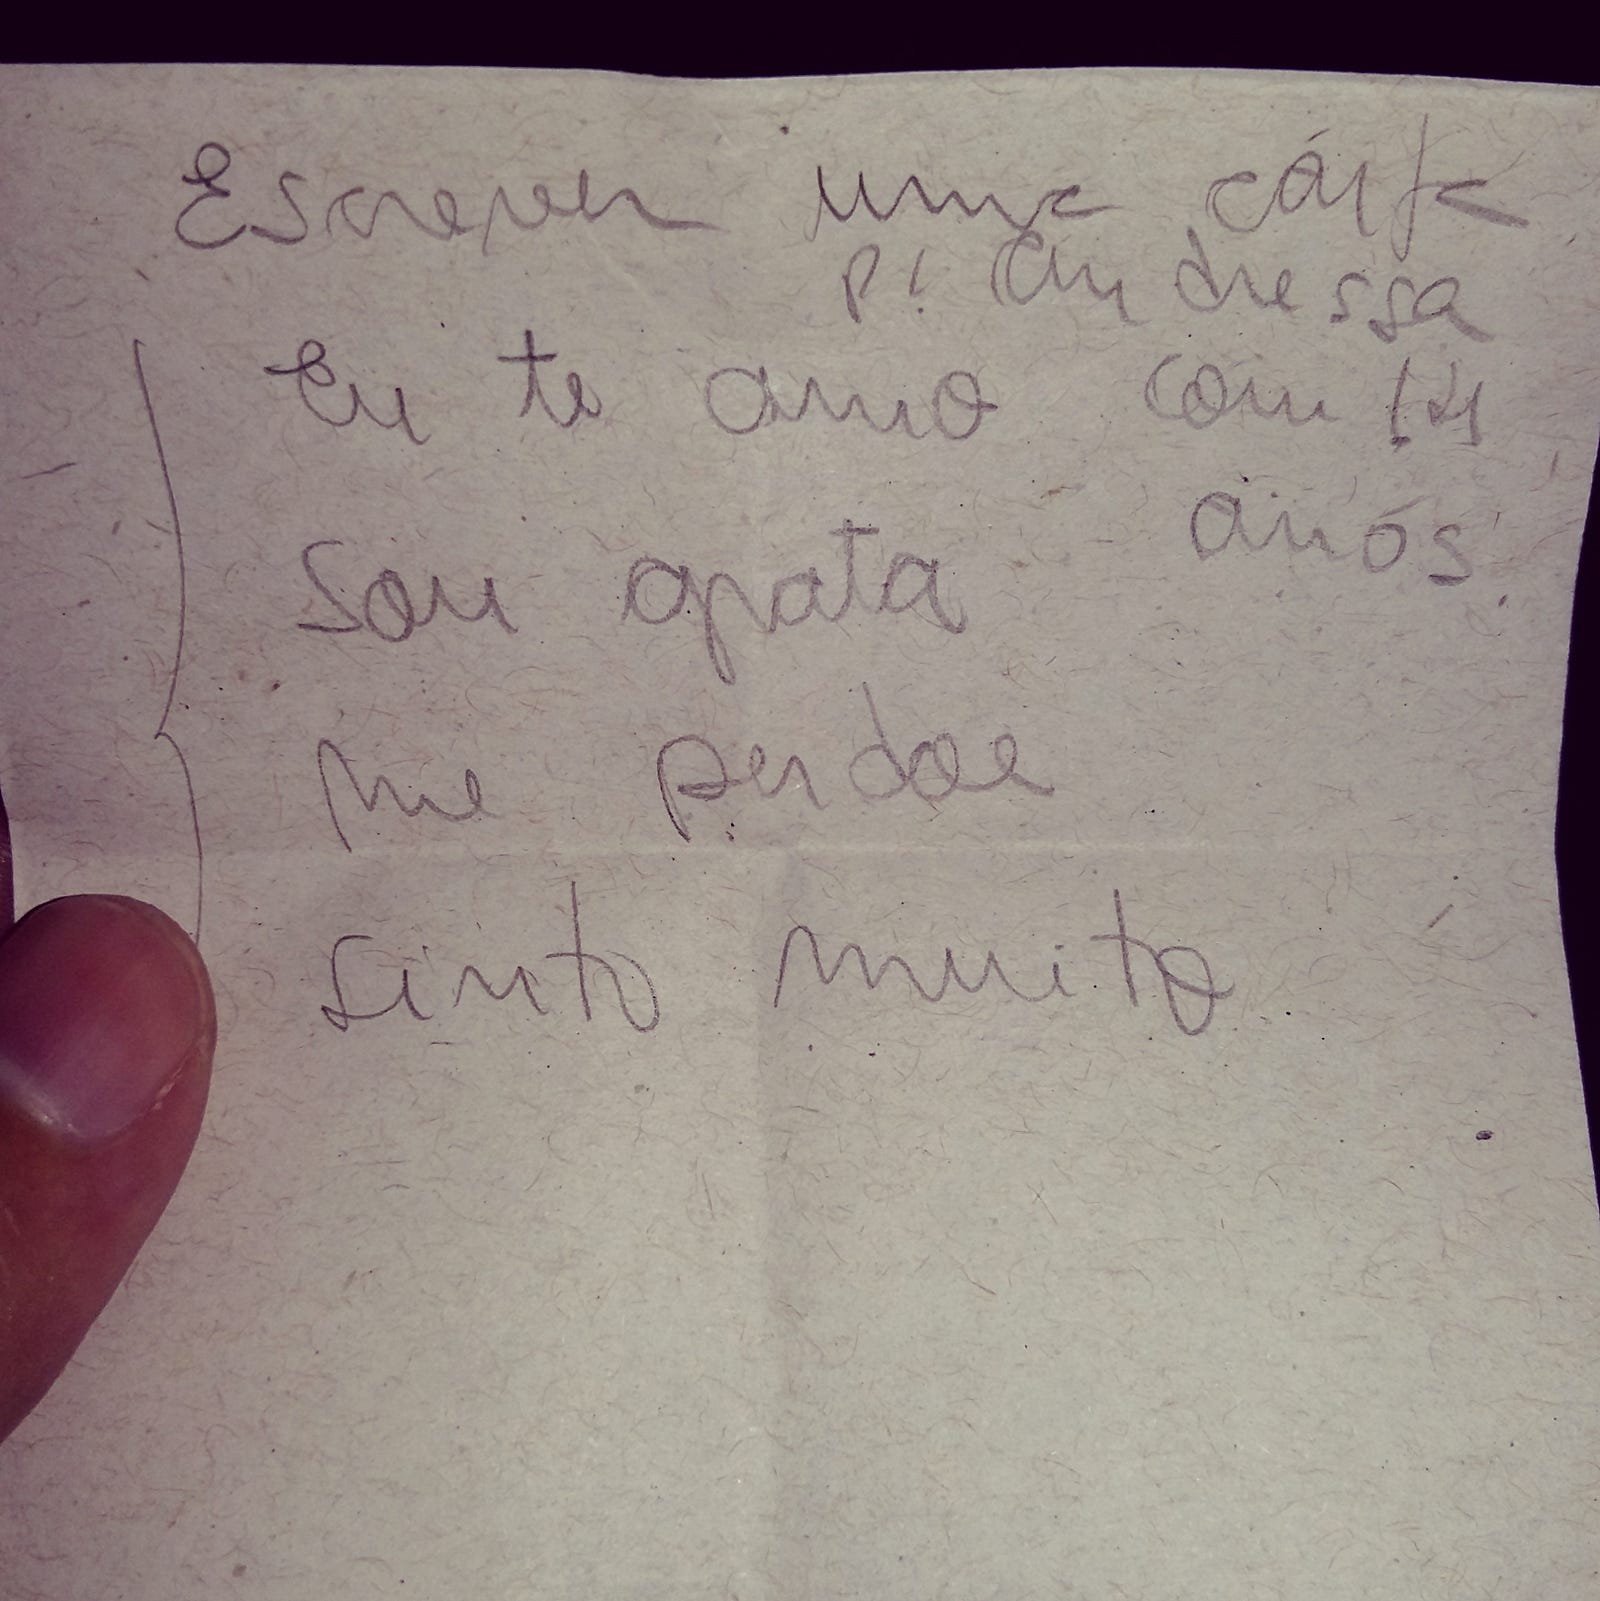 Escrever uma carta
p/ Andressa
Eu te amo com 14
anos.
Sou grata
Me perdoe
Sinto muito